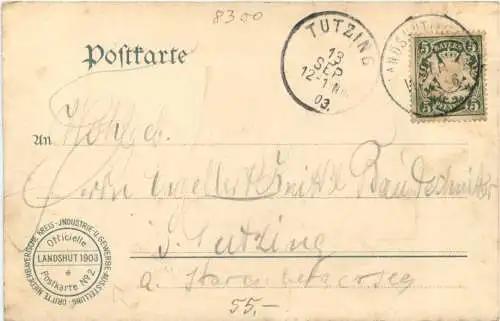 8300
Postkarte
TUTZING
13
SEP
12-1 Nm.
03.
LANDSHUT
5 BAYERN 5
An
Herrn Engelbert Knittl Bautechniker
Tutzing
a. Starnbergersee
DRITTE NIEDERBAYERISCHE KREIS-JNDUSTRIE-U. GEWERBE-AUSSTELLUNG
Officielle
LANDSHUT 1903
Postkarte No 2
55,-